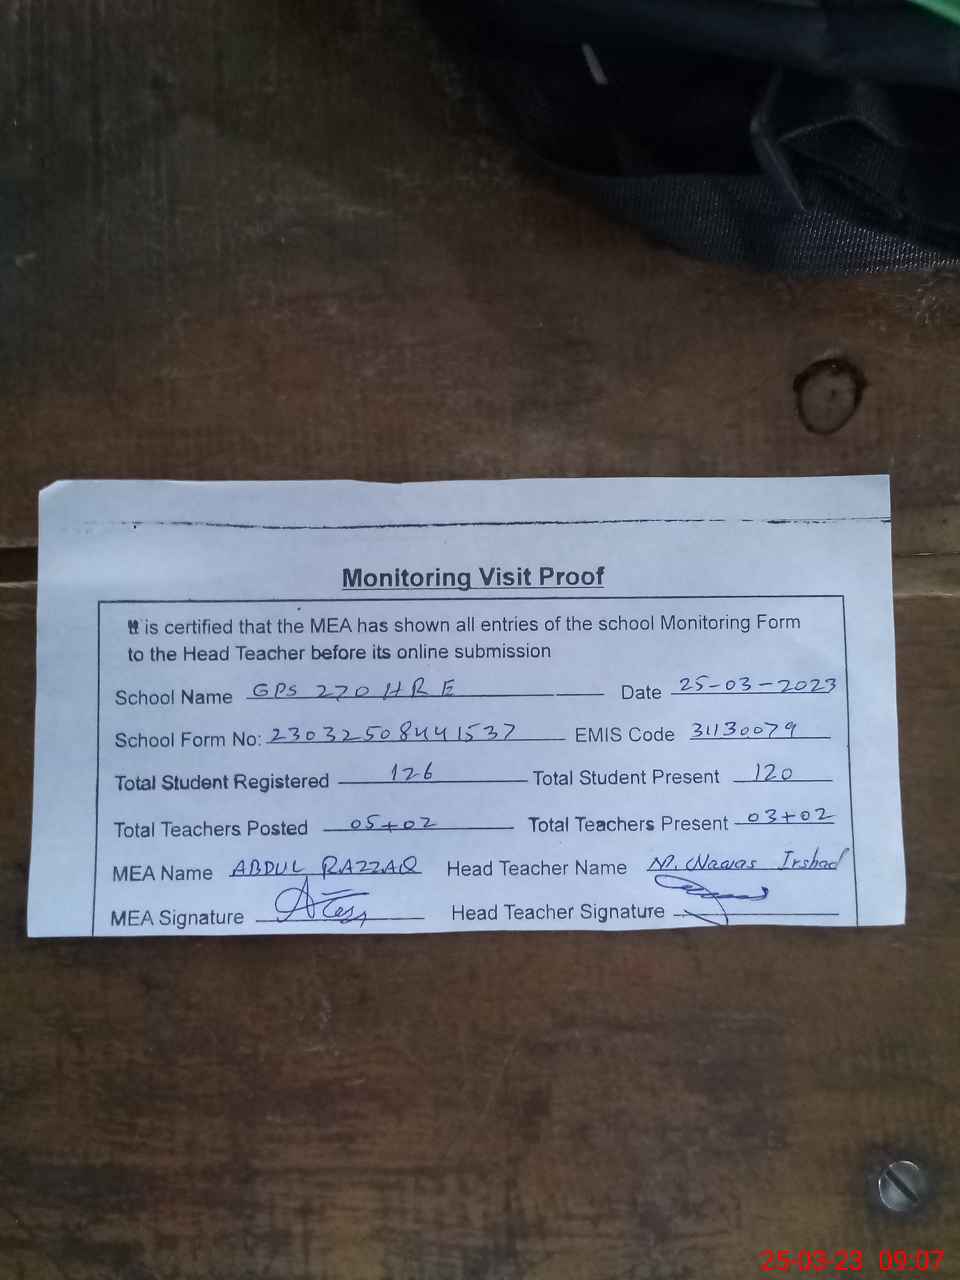 Monitoring Visit Proof
It is certified that the MEA has shown all entries of the school Monitoring Form
to the Head Teacher before its online submission
School Name GPS 270 HRE Date 25-03-2023
School Form No: 23032508441537 EMIS Code 31130079
Total Student Registered 126 Total Student Present 120
Total Teachers Posted 05+02 Total Teachers Present 03+02
MEA Name ABDUL RAZZAQ Head Teacher Name M. Nawas Irshad
MEA Signature Head Teacher Signature
25-03-23 09:07